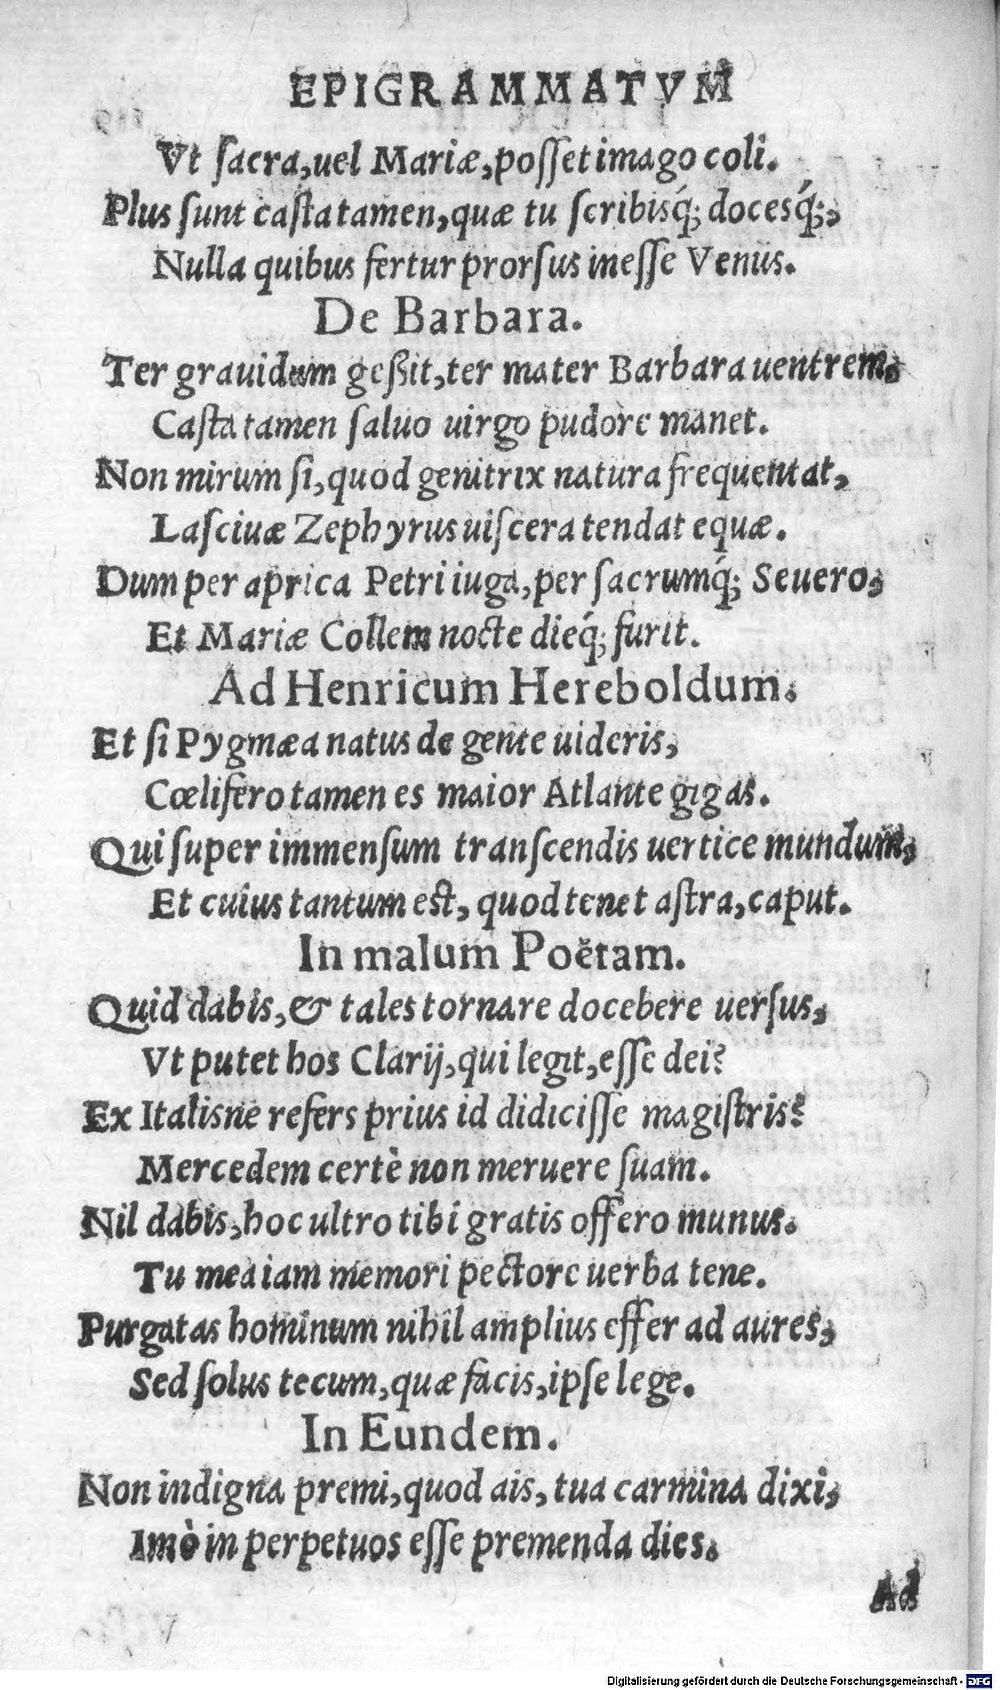 EPIGRAMMATVM
Vt sacra,uel Mariæ,posset imago coli.
Plus sunt casta tamen,quæ tu scribisq́; docesq́;,
Nulla quibus fertur prorsus inesse Venus.
De Barbara.
Ter grauidum geßit,ter mater Barbara uentrem,
Casta tamen saluo uirgo pudore manet.
Non mirum si,quod genitrix natura frequentat,
Lasciuæ Zephyrus uiscera tendat equæ.
Dum per aprica Petri iuga,per sacrumq́; Seuero,
Et Mariæ Collem nocte dieq́; furit.
Ad Henricum Hereboldum.
Et si Pygmæa natus de gente uideris,
Cœlifero tamen es maior Atlante gigas.
Qui super immensum transcendis uertice mundum,
Et cuius tantum est, quod tenet astra,caput.
In malum Poëtam.
Quid dabis,& tales tornare docebere uersus,
Vt putet hos Clarij,qui legit,esse dei?
Ex Italisne refers prius id didicisse magistris?
Mercedem certè non meruere suam.
Nil dabis,hoc ultro tibi gratis offero munus.
Tu mea iam memori pectore uerba tene.
Purgatas hominum nihil amplius effer ad aures,
Sed solus tecum,quæ facis,ipse lege.
In Eundem.
Non indigna premi,quod ais, tua carmina dixi,
Imò in perpetuos esse premenda dies.
Ad
Digitalisierung gefördert durch die Deutsche Forschungsgemeinschaft - DFG